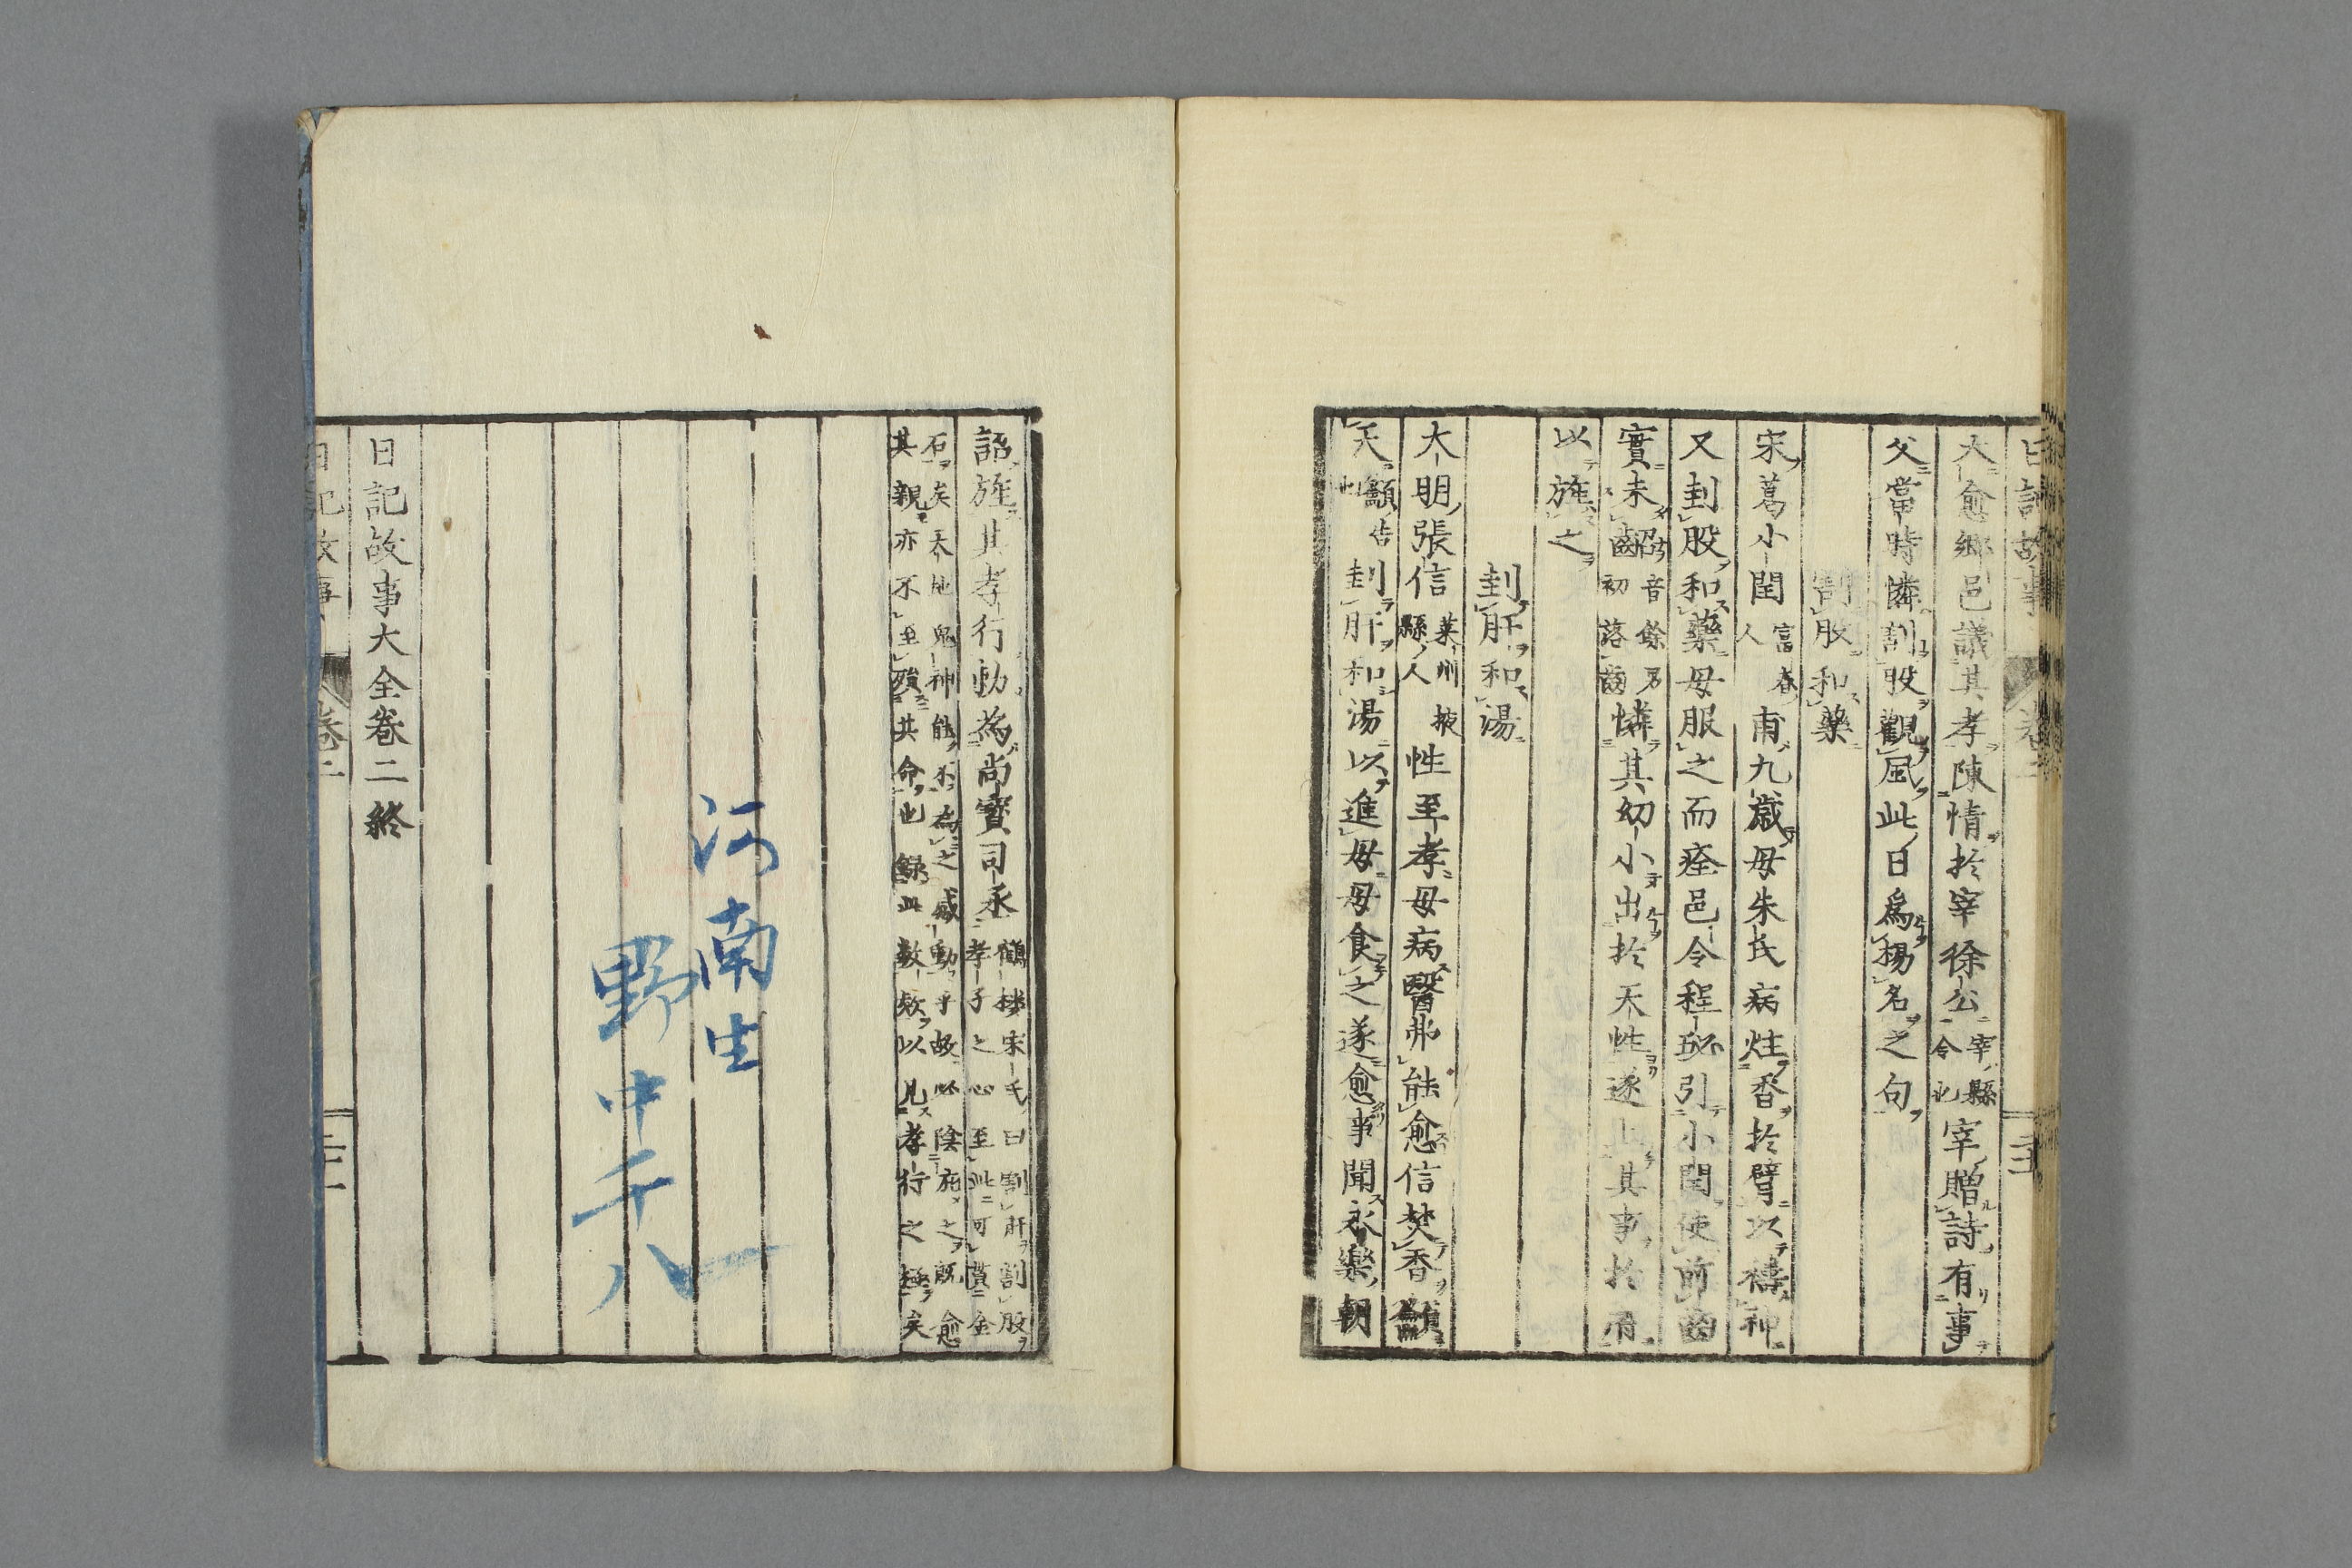 大愈鄉邑議其孝陳情於宰徐公宰縣令也宰贈詩有事
父當時憐割股觀風此日爲揚名之句
割股和藥
宋葛小閏富春人甫九歲母朱氏病炷香於臂以禱神
又刲股和藥母服之而痊邑令程邳引小閏使前齒
實未齠音條男初落齒憐其幼小出於天性遂上其事於府
以旌之
刲肝和湯
大明張信萊州掖縣人性至孝母病醫弗能愈信焚香籲
天籲告也刲肝和湯以進母母食之遂愈事聞永樂朝
詔旌其孝行勅爲尚寶司丞鶴樓宋氏曰割肝割股孝子之心至此可貫金
石矣天地鬼神能不爲之感動乎故必陰施之既愈其親亦不至殞其命也錄此數欵以見孝行之極矣
河南生
野中千八
日記故事大全卷二終
日記故事 卷二